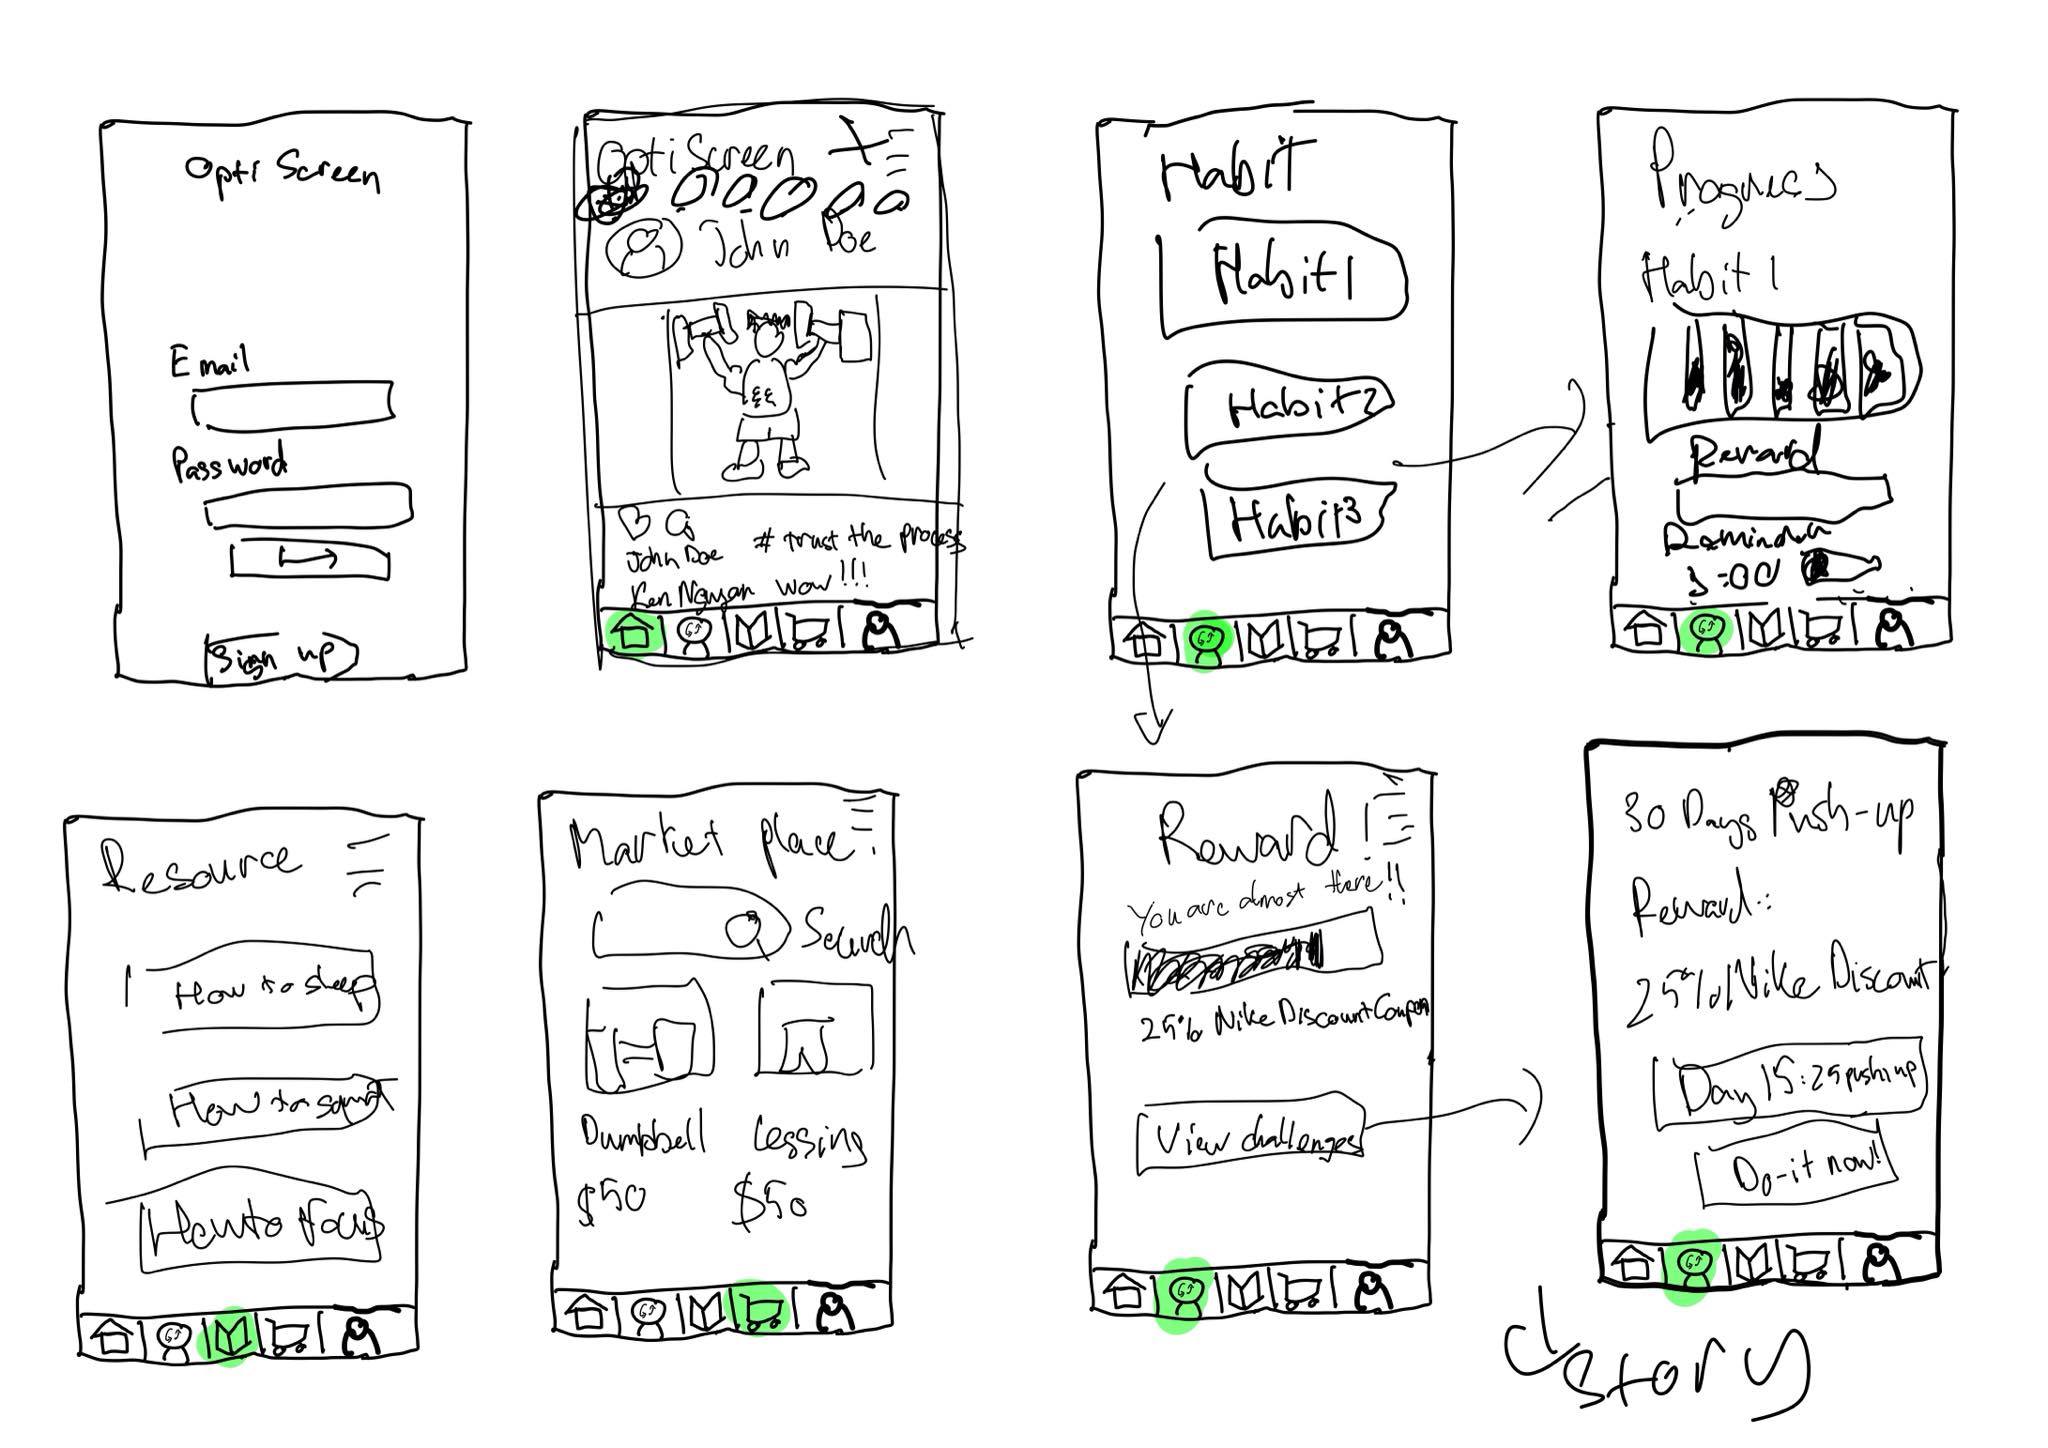 Opti Screen
Email
Password
Sign up
OptiScreen
John Doe
John Doe # trust the process
Ken Nguyan wow!!!
Habit
Habit1
Habit2
Habit3
Progress
Habit 1
Reward
Reminder
3:00
Resource
How to sleep
How to squat
How to focus
Market place
Search
Dumpbell Lessing
$50 $50
Reward!
You are almost there!!
25% Nike Discount Coupon
View challenges
30 Days Push-up
Reward:
25% Nike Discount
Day 15: 25 pushup
Do-it now!
story